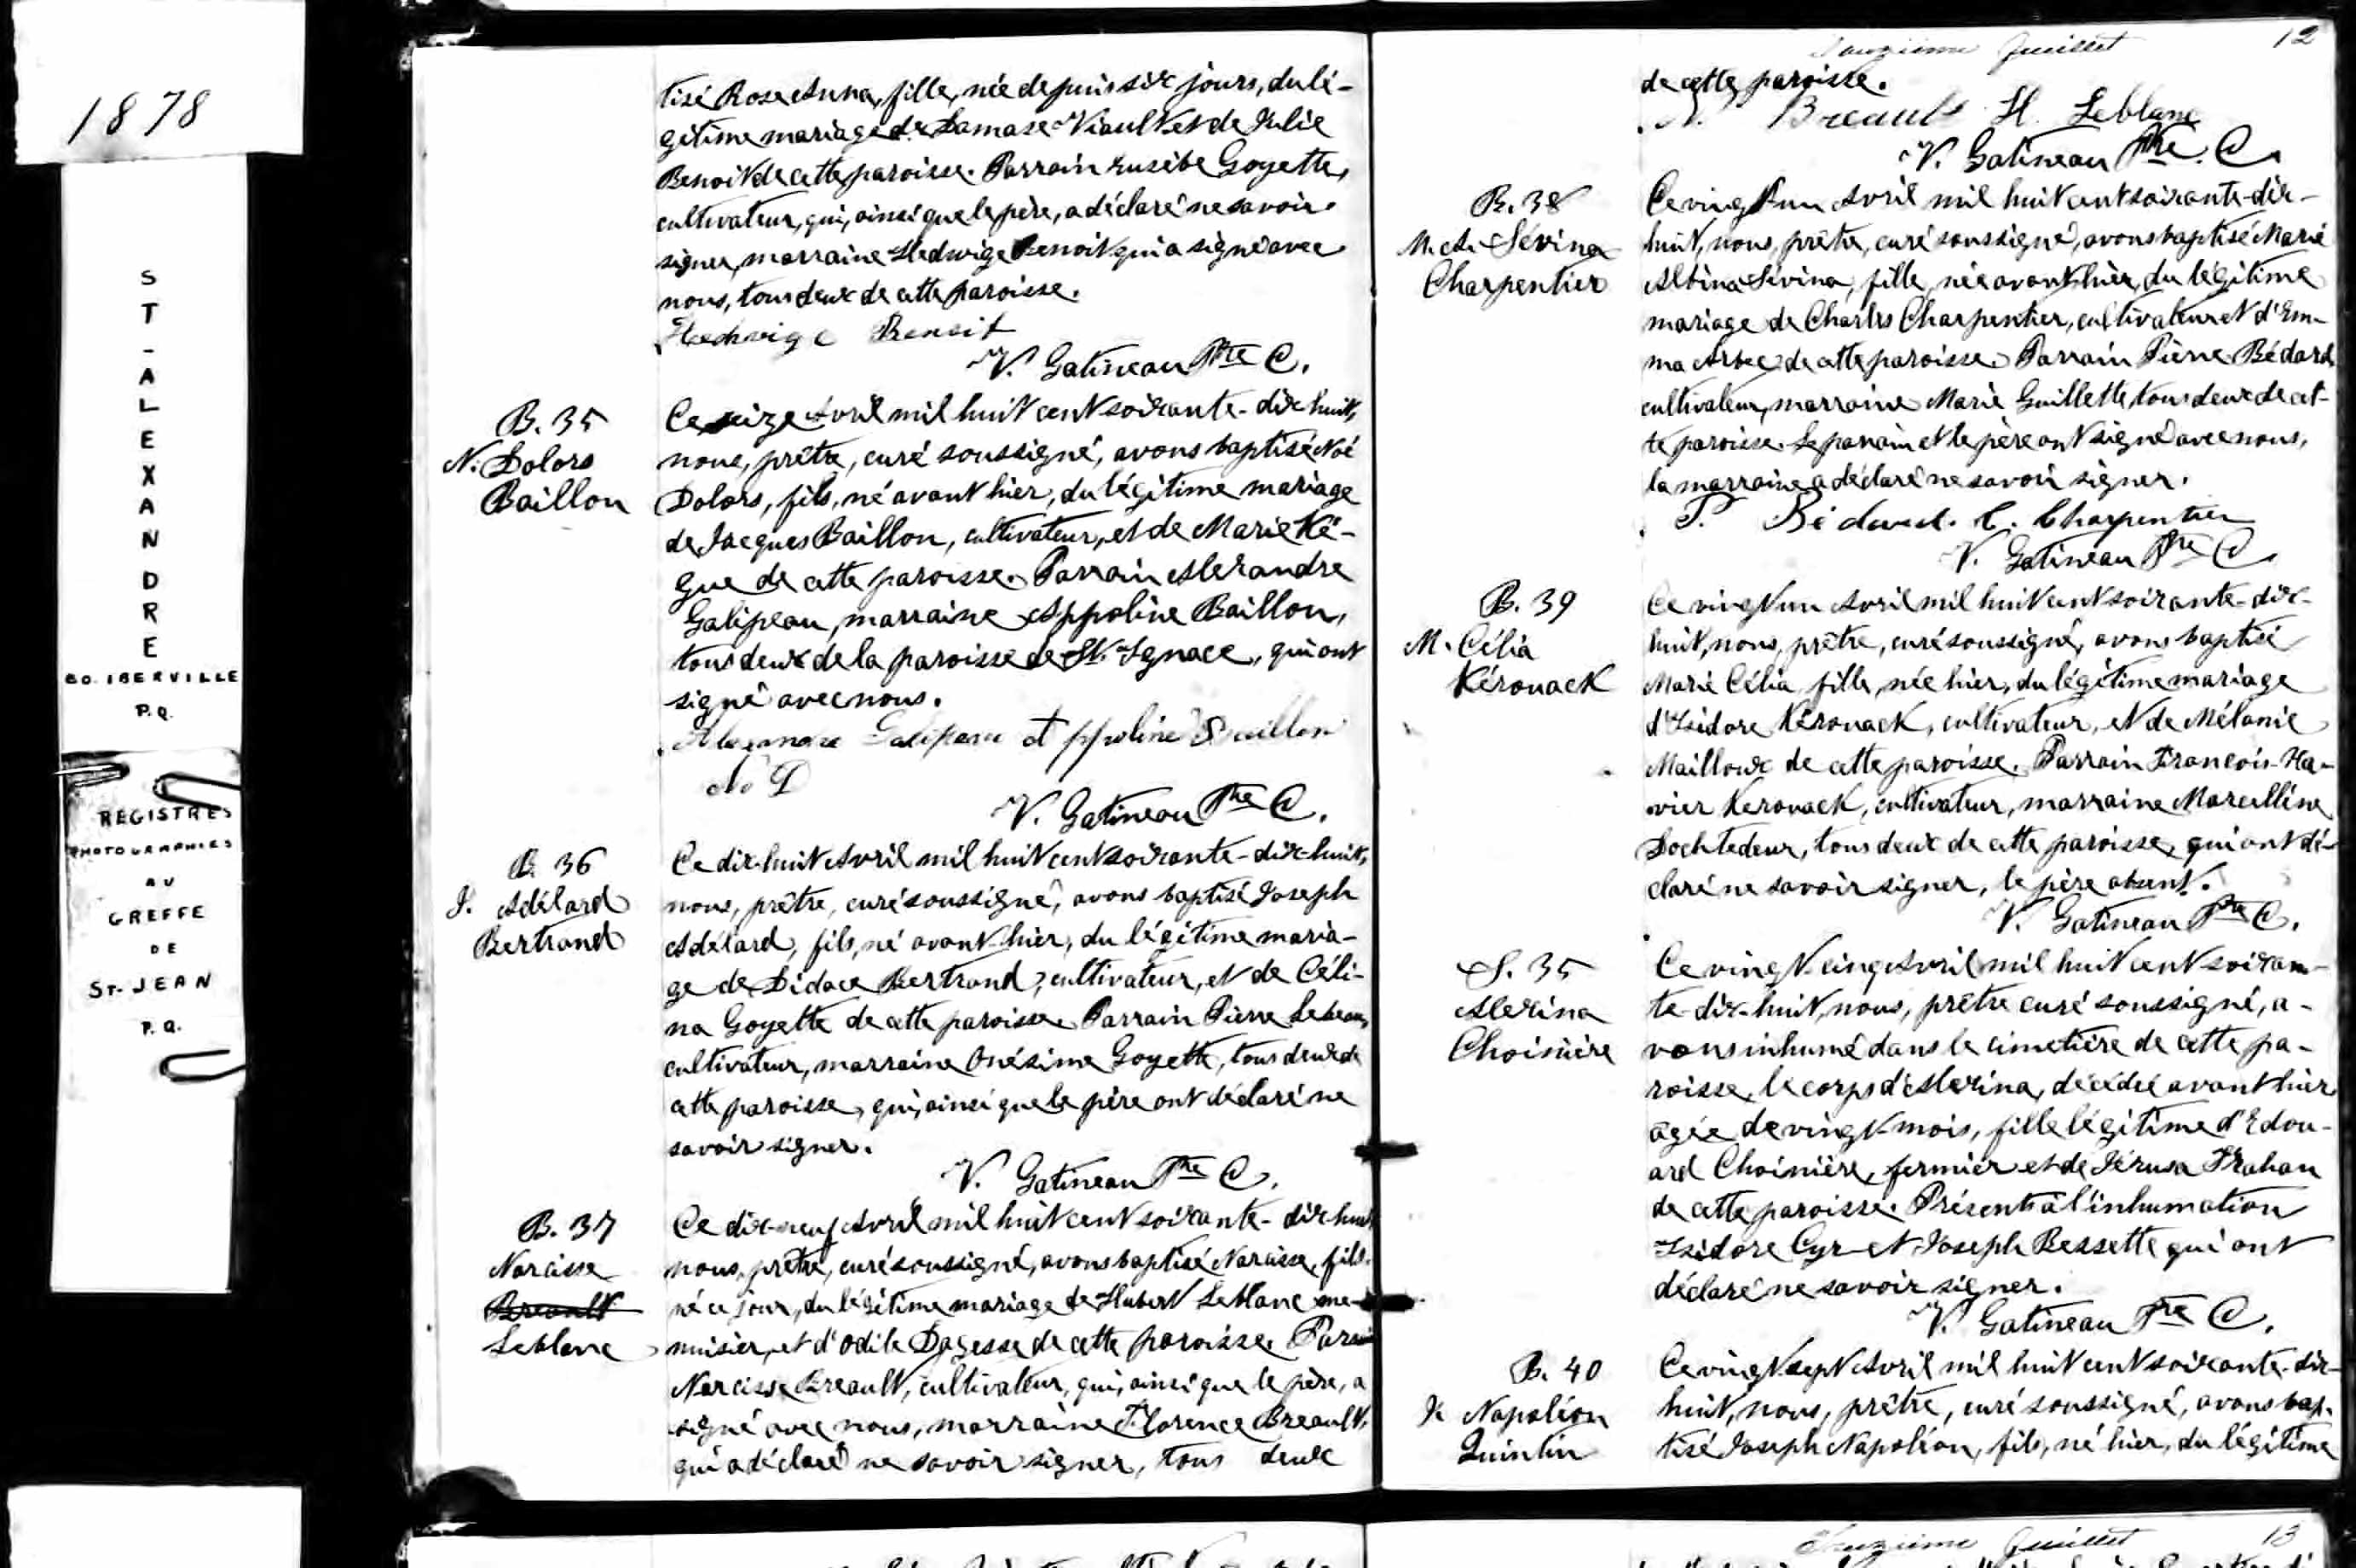 1878
ST-ALEXANDRE
CO. IBERVILLE
P.Q.
REGISTRES
PHOTOGRAPHIES
AU
GREFFE
DE
ST-JEAN
P.Q.
tisé Rose Anna, fille, née depuis six jours, du lé-
gitime mariage de Damase Viault et de Julie
Benoit de cette paroisse. Parrain Eusèbe Goyette,
cultivateur, qui, ainsi que le père, a déclaré ne savoir
signer, marraine Hedwige Benoit qui a signé avec
nous, tous deux de cette paroisse.
Hedwige Benoit
V. Gatineau Ptre C.
B. 35
N. Dolors
Baillon
Ce seize Avril mil huit cent soixante-dix huit,
nous, prêtre, curé soussigné, avons baptisé Noé
Dolors, fils, né avant hier, du légitime mariage
de Jacques Baillon, cultivateur, et de Marie Ké-
gue de cette paroisse. Parrain Alexandre
Galipeau, marraine Appoline Baillon,
tous deux de la paroisse de St. Ignace, qui ont
signé avec nous.
Alexandre Galipeau Appoline Baillon
V. Gatineau Ptre C.
B. 36
J. Adélard
Bertrand
Ce dix-huit Avril mil huit cent soixante-dix-huit,
nous, prêtre, curé soussigné, avons baptisé Joseph
Adélard, fils, né avant-hier, du légitime maria-
ge de Didace Bertrand, cultivateur, et de Céli-
na Goyette de cette paroisse. Parrain Pierre Lebeau,
cultivateur, marraine Onésime Goyette, tous deux de
cette paroisse, qui, ainsi que le père ont déclaré ne
savoir signer.
V. Gatineau Ptre C.
B. 37
Narcisse
Breault
Leblanc
Ce dix-neuf Avril mil huit cent soixante-dix huit
nous, prêtre, curé soussigné, avons baptisé Narcisse, fils
né ce jour, du légitime mariage de Hubert Leblanc me-
nuisier, et d'Odile Dagesse de cette paroisse. Parrain
Narcisse Breault, cultivateur, qui, ainsi que le père, a
signé avec nous, marraine Florence Breault,
qui a déclaré ne savoir signer, tous deux
Douzième feuillet 12
de cette paroisse.
N. Breault H. Leblanc
V. Gatineau Ptre C.
B. 38
M. A. Sévina
Charpentier
Ce vingt un Avril mil huit cent soixante-dix-
huit, nous, prêtre, curé soussigné, avons baptisé Marie
Albina Sévina, fille, née avant hier, du légitime
mariage de Charles Charpentier, cultivateur et d'Em-
ma Arbec de cette paroisse. Parrain Pierre Bédard
cultivateur, marraine Marie Guillette, tous deux de cet-
te paroisse. Le parrain et le père ont signé avec nous,
la marraine a déclaré ne savoir signer.
P. Bédard. C. Charpentier
V. Gatineau Ptre C.
B. 39
M. Célia
Kérouack
Ce vingt un Avril mil huit cent soixante-dix-
huit, nous, prêtre, curé soussigné, avons baptisé
Marie Célia, fille, née hier, du légitime mariage
d'Isidore Kérouack, cultivateur, et de Mélanie
Mailloux de cette paroisse. Parrain François-Xa-
vier Kerouack, cultivateur, marraine Marcelline
Dochtedeur, tous deux de cette paroisse, qui ont dé-
claré ne savoir signer, le père absent.
V. Gatineau Ptre C.
S. 35
Alexina
Choinière
Ce vingt-cinq Avril mil huit cent soixan-
te-dix-huit, nous, prêtre curé soussigné, a-
vons inhumé dans le cimetière de cette pa-
roisse, le corps d'Alexina, décédée avant hier
âgée de vingt-mois, fille légitime d'Edou-
ard Choinière, fermier et de Jérusa Trahan
de cette paroisse. Présents à l'inhumation
Isidore Cyr et Joseph Bessette qui ont
déclaré ne savoir signer.
V. Gatineau Ptre C.
B. 40
J. Napoléon
Quintin
Ce vingt-sept Avril mil huit cent soixante-dix-
huit, nous, prêtre, curé soussigné, avons bap-
tisé Joseph Napoléon, fils, né hier, du légitime
feuillet 13